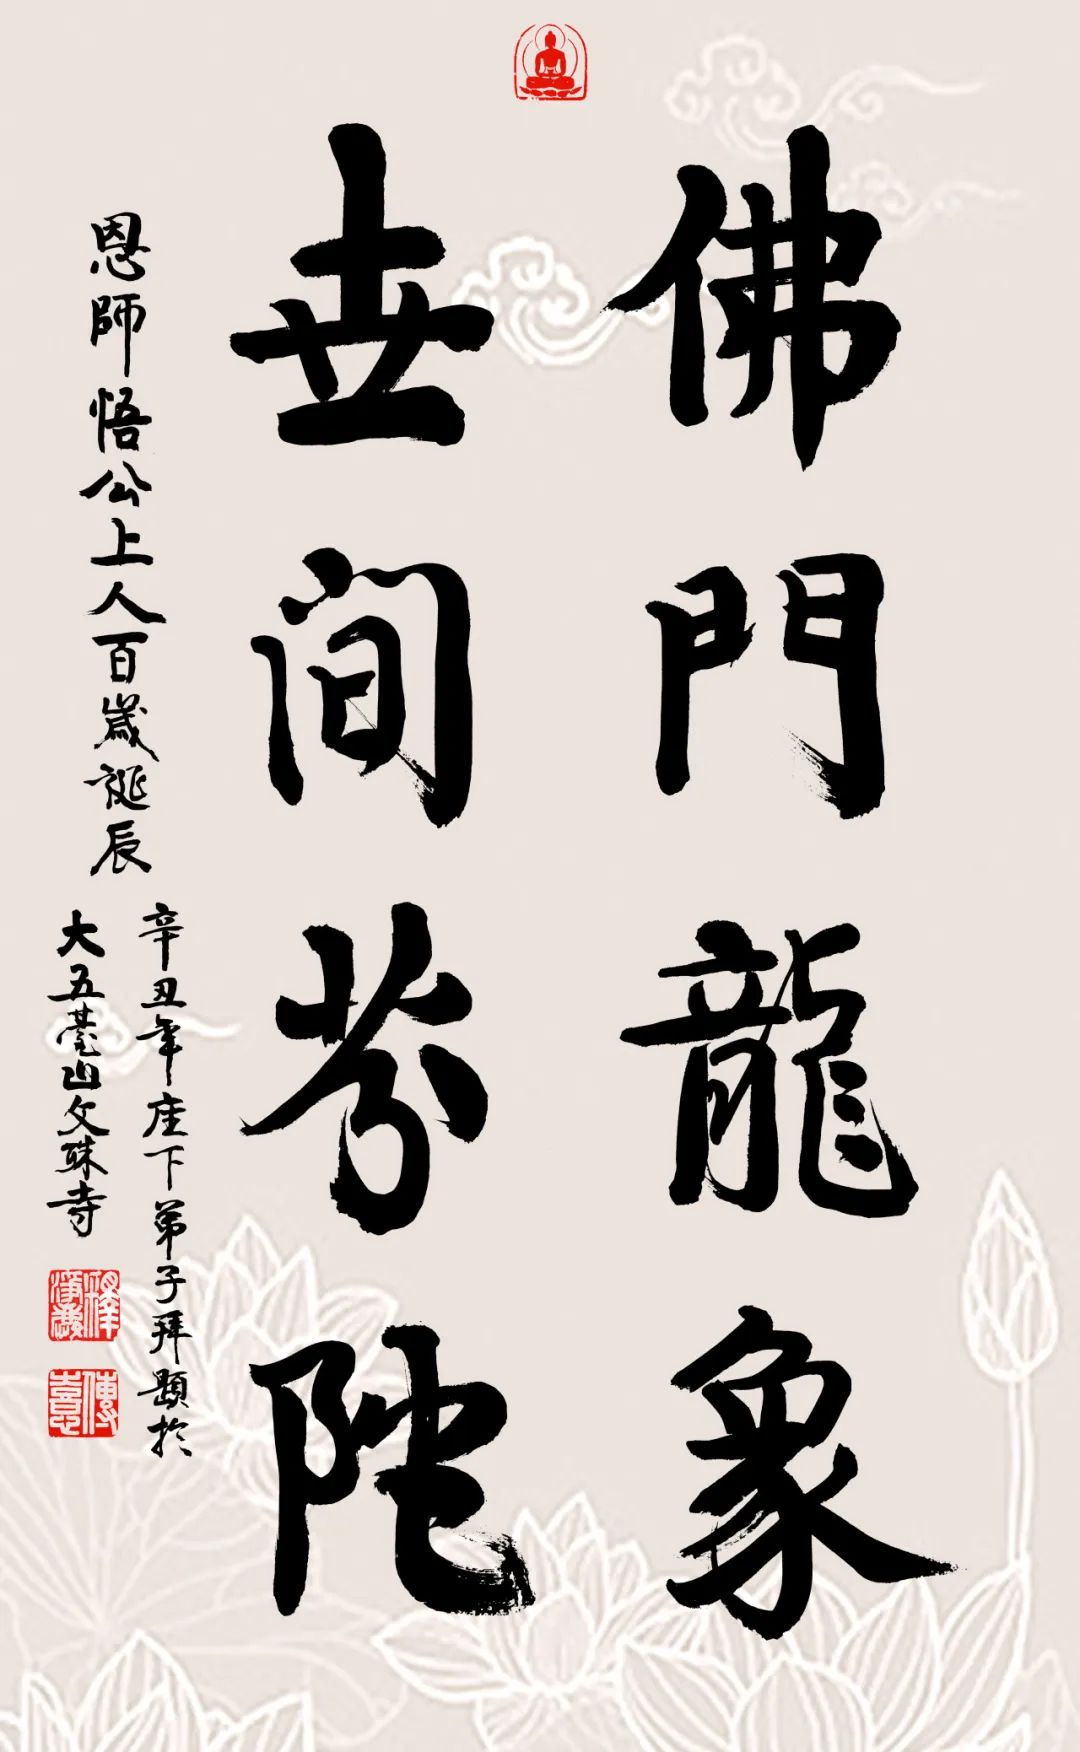 佛門龍象
世间芬陀
恩師悟公上人百歲誕辰
辛丑年座下弟子拜題於
大五臺山文殊寺